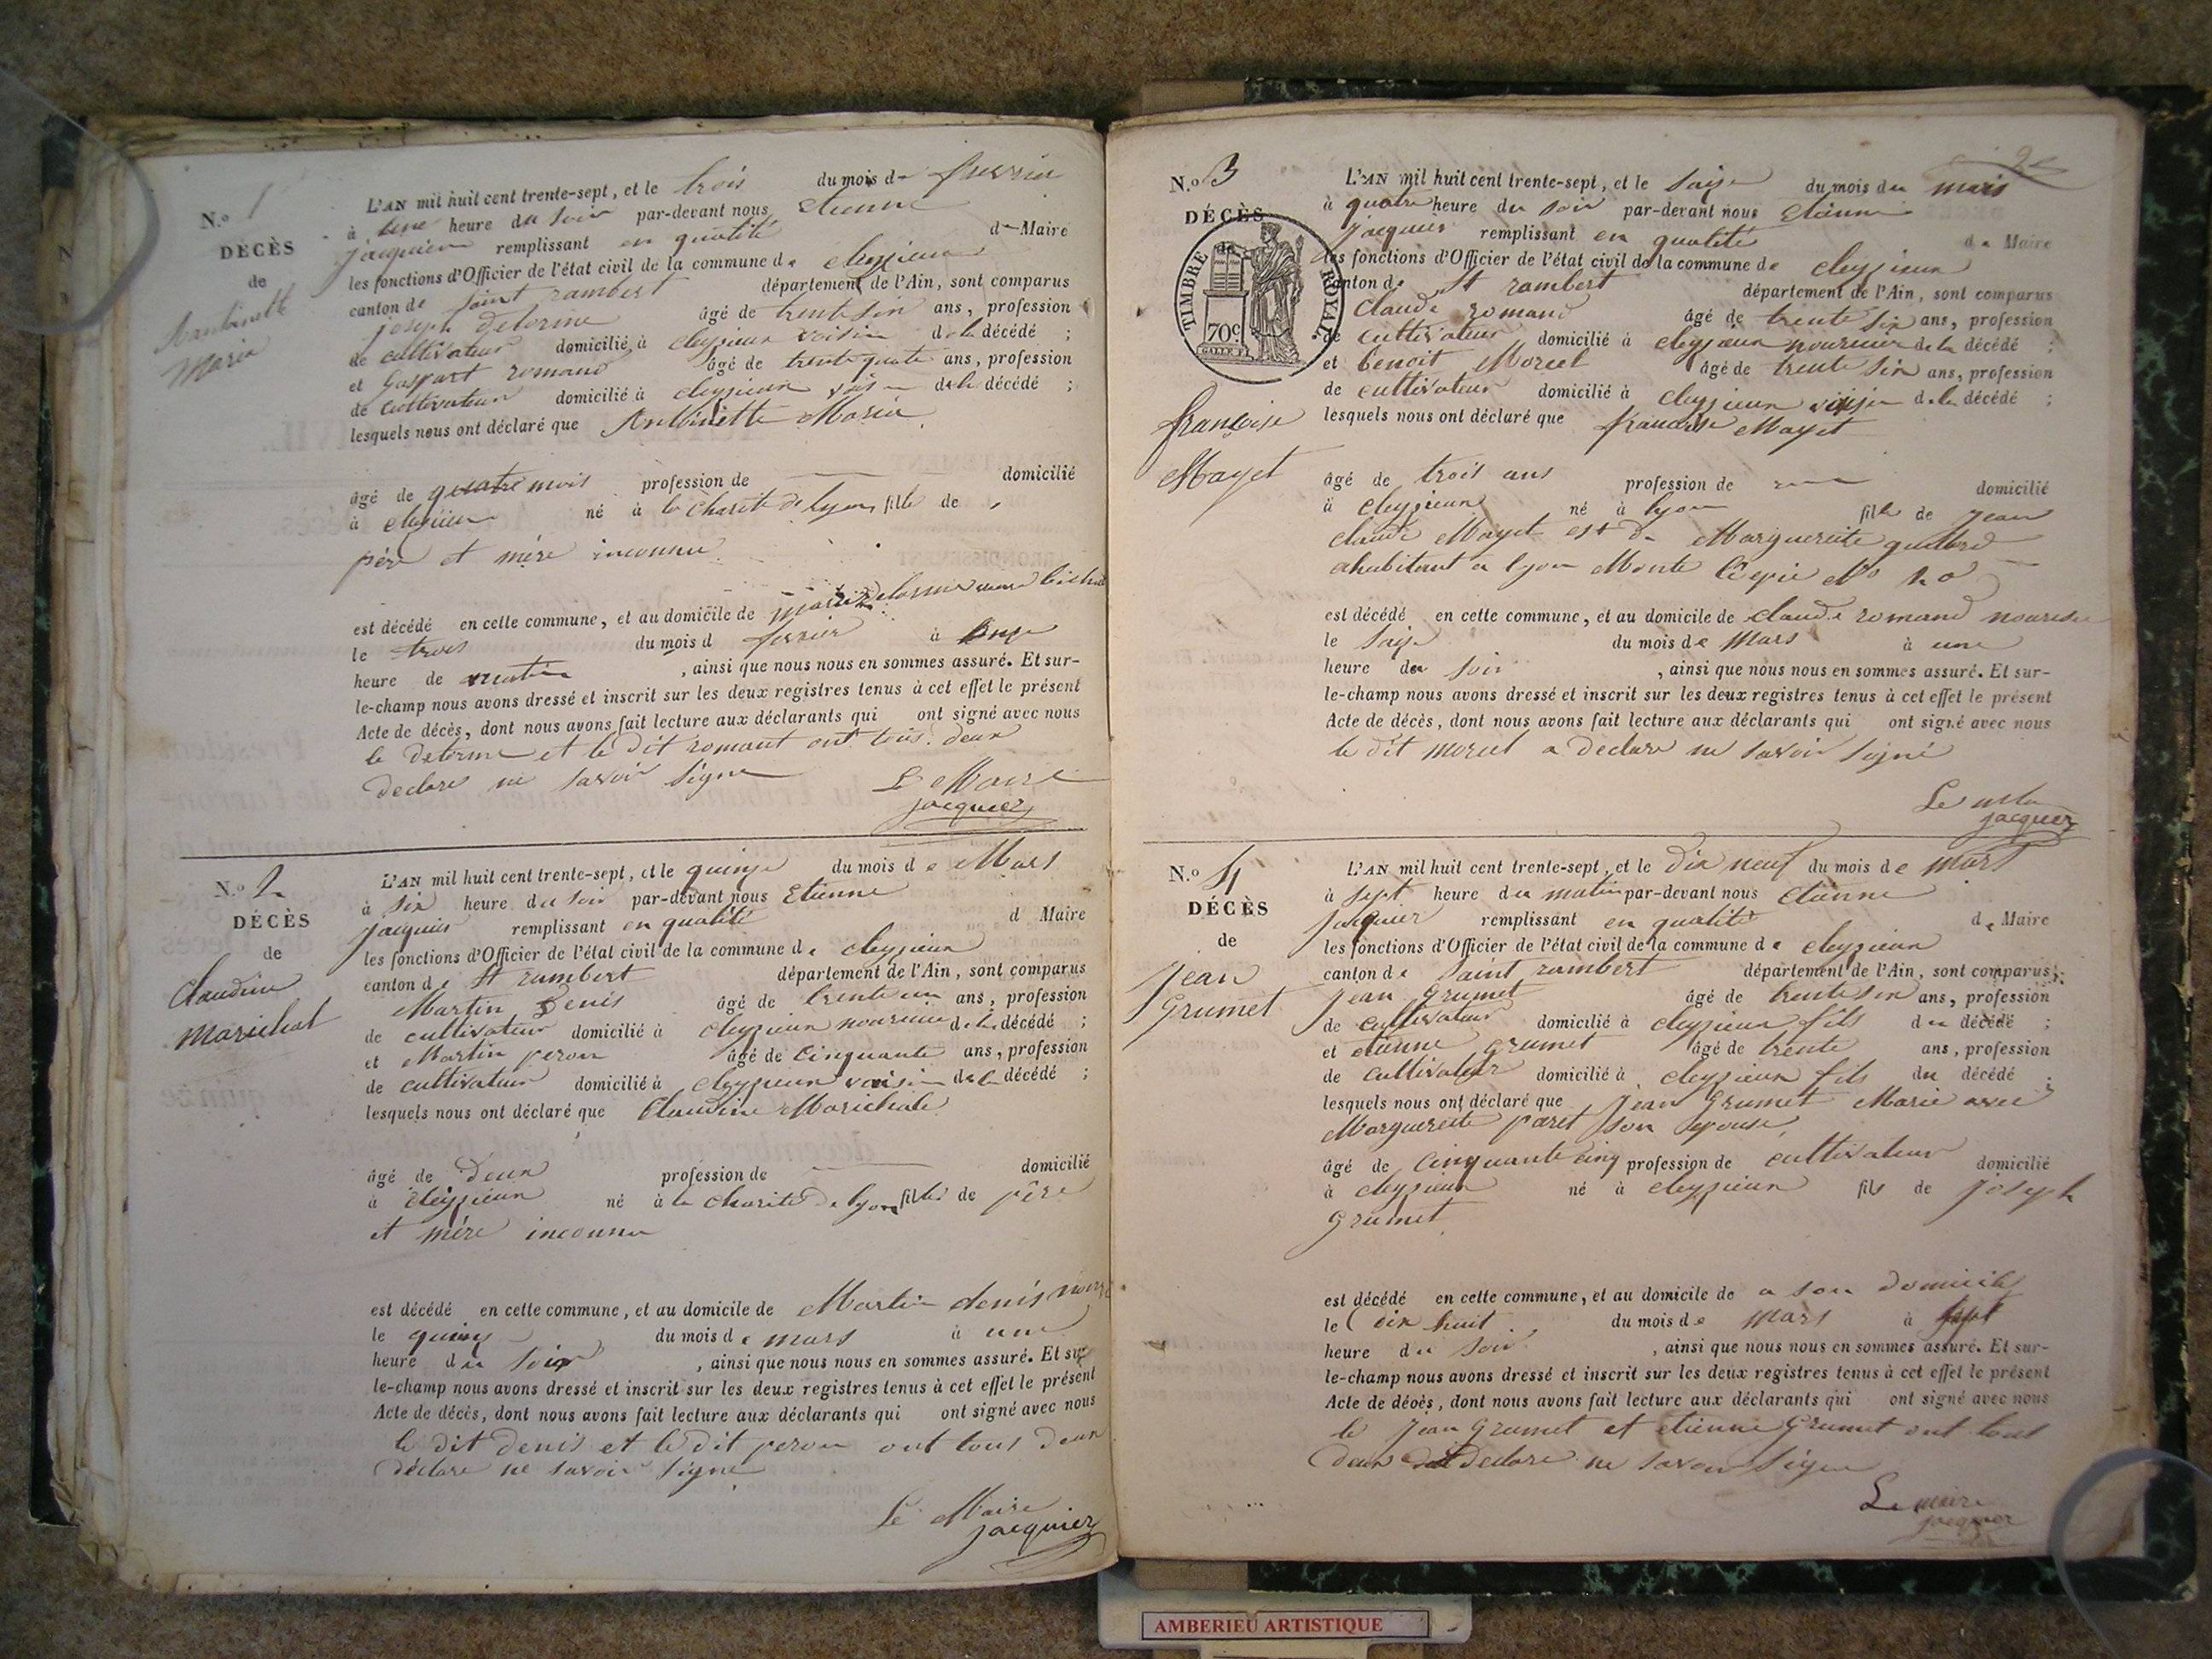 N.o 1
DÉCÈS
de
Antoinette
Maria
L'AN mil huit cent trente-sept, et le trois du mois de fevrier
à une heure du soir par-devant nous etienne
jacquier remplissant en qualité de Maire
les fonctions d'Officier de l'état civil de la commune de cleyzieux
canton de saint rambert département de l'Ain, sont comparus
joseph Delorme âgé de trente six ans, profession
de cultivateur domicilié à cleyzieux voisin de la décédé ;
et Gaspart romand âgé de trente quatre ans, profession
de cultivateur domicilié à cleyzieux voisin de la décédé ;
lesquels nous ont déclaré que Antoinette Maria
âgé de quatre mois profession de domicilié
à cleyzieux né à la charité de lyon fille de
père et mère inconnu
est décédé en cette commune, et au domicile de
le trois du mois d fevrier à onze
heure de matin , ainsi que nous nous en sommes assuré. Et sur-
le-champ nous avons dressé et inscrit sur les deux registres tenus à cet effet le présent
Acte de décès, dont nous avons fait lecture aux déclarants qui ont signé avec nous
le Delorme et le dit romant ont tous deux
declare ne savoir signe
Le Maire
jacquier
N.o 2
DÉCÈS
de
Claudine
Marichal
L'AN mil huit cent trente-sept, et le quinze du mois de Mars
à six heure du soir par-devant nous Etienne
jacquier remplissant en qualité d Maire
les fonctions d'Officier de l'état civil de la commune de cleyzieux
canton de St rambert département de l'Ain, sont comparus
Martin Denis âgé de trente un ans, profession
de cultivateur domicilié à cleyzieux de la décédé ;
et Martin peron âgé de cinquante ans, profession
de cultivateur domicilié à cleyzieux voisin de la décédé ;
lesquels nous ont déclaré que Claudine Marichale
âgé de deux profession de domicilié
à cleyzieux né à la charité de lyon fille de père
et mére inconnu
est décédé en cette commune, et au domicile de Martin denis
le quinze du mois de mars à une
heure du soir , ainsi que nous nous en sommes assuré. Et sur-
le-champ nous avons dressé et inscrit sur les deux registres tenus à cet effet le présent
Acte de décès, dont nous avons fait lecture aux déclarants qui ont signé avec nous
le dit denis et le dit peron ont tous deux
déclare ne savoir signe
Le Maire
jacquier
N.o 3
DÉCÈS
de
TIMBRE ROYAL
70c
françoise
Mayet
L'AN mil huit cent trente-sept, et le saize du mois du mars
à quatre heure du soir par-devant nous etienne
jacquier remplissant en qualité de Maire
les fonctions d'Officier de l'état civil de la commune de cleyzieux
canton de St rambert département de l'Ain, sont comparus
Claude romand âgé de trente six ans, profession
de cultivateur domicilié à cleyzieux de la décédé ;
et benoit Morcel âgé de trente six ans, profession
de cultivateur domicilié à cleyzieux de la décédé ;
lesquels nous ont déclaré que francoise Mayet
âgé de trois ans profession de domicilié
à cleyzieux né à lyon fille de jean
claude Mayet est de Marguerite
ahabitant a lyon
est décédé en cette commune, et au domicile de claude romand
le saize du mois de mars à une
heure du soir , ainsi que nous nous en sommes assuré. Et sur-
le-champ nous avons dressé et inscrit sur les deux registres tenus à cet effet le présent
Acte de décès, dont nous avons fait lecture aux déclarants qui ont signé avec nous
le dit morcel a declare ne savoir signé
jacquier
N.o 4
DÉCÈS
de
jean
Grumet
L'AN mil huit cent trente-sept, et le dix neuf du mois de mars
à sept heure du matin par-devant nous etienne
jacquier remplissant en qualité de Maire
les fonctions d'Officier de l'état civil de la commune de cleyzieux
canton de saint rambert département de l'Ain, sont comparus
jean grumet âgé de trente six ans, profession
de cultivateur domicilié à cleyzieux fils du décédé ;
et etienne grumet âgé de trente ans, profession
de cultivateur domicilié à cleyzieux fils du décédé ;
lesquels nous ont déclaré que jean Grumet Marié avec
Marguerite paret son epouse
âgé de cinquante cinq profession de cultivateur domicilié
à cleyzieux né à cleyzieux fils de joseph
grumet
est décédé en cette commune, et au domicile de a son domicile
le dix huit du mois de mars à sept
heure du soir , ainsi que nous nous en sommes assuré. Et sur-
le-champ nous avons dressé et inscrit sur les deux registres tenus à cet effet le présent
Acte de décès, dont nous avons fait lecture aux déclarants qui ont signé avec nous
le jean grumet et etienne Grumet ont tous
deux declare ne savoir signe
Le maire
jacquier
AMBERIEU ARTISTIQUE